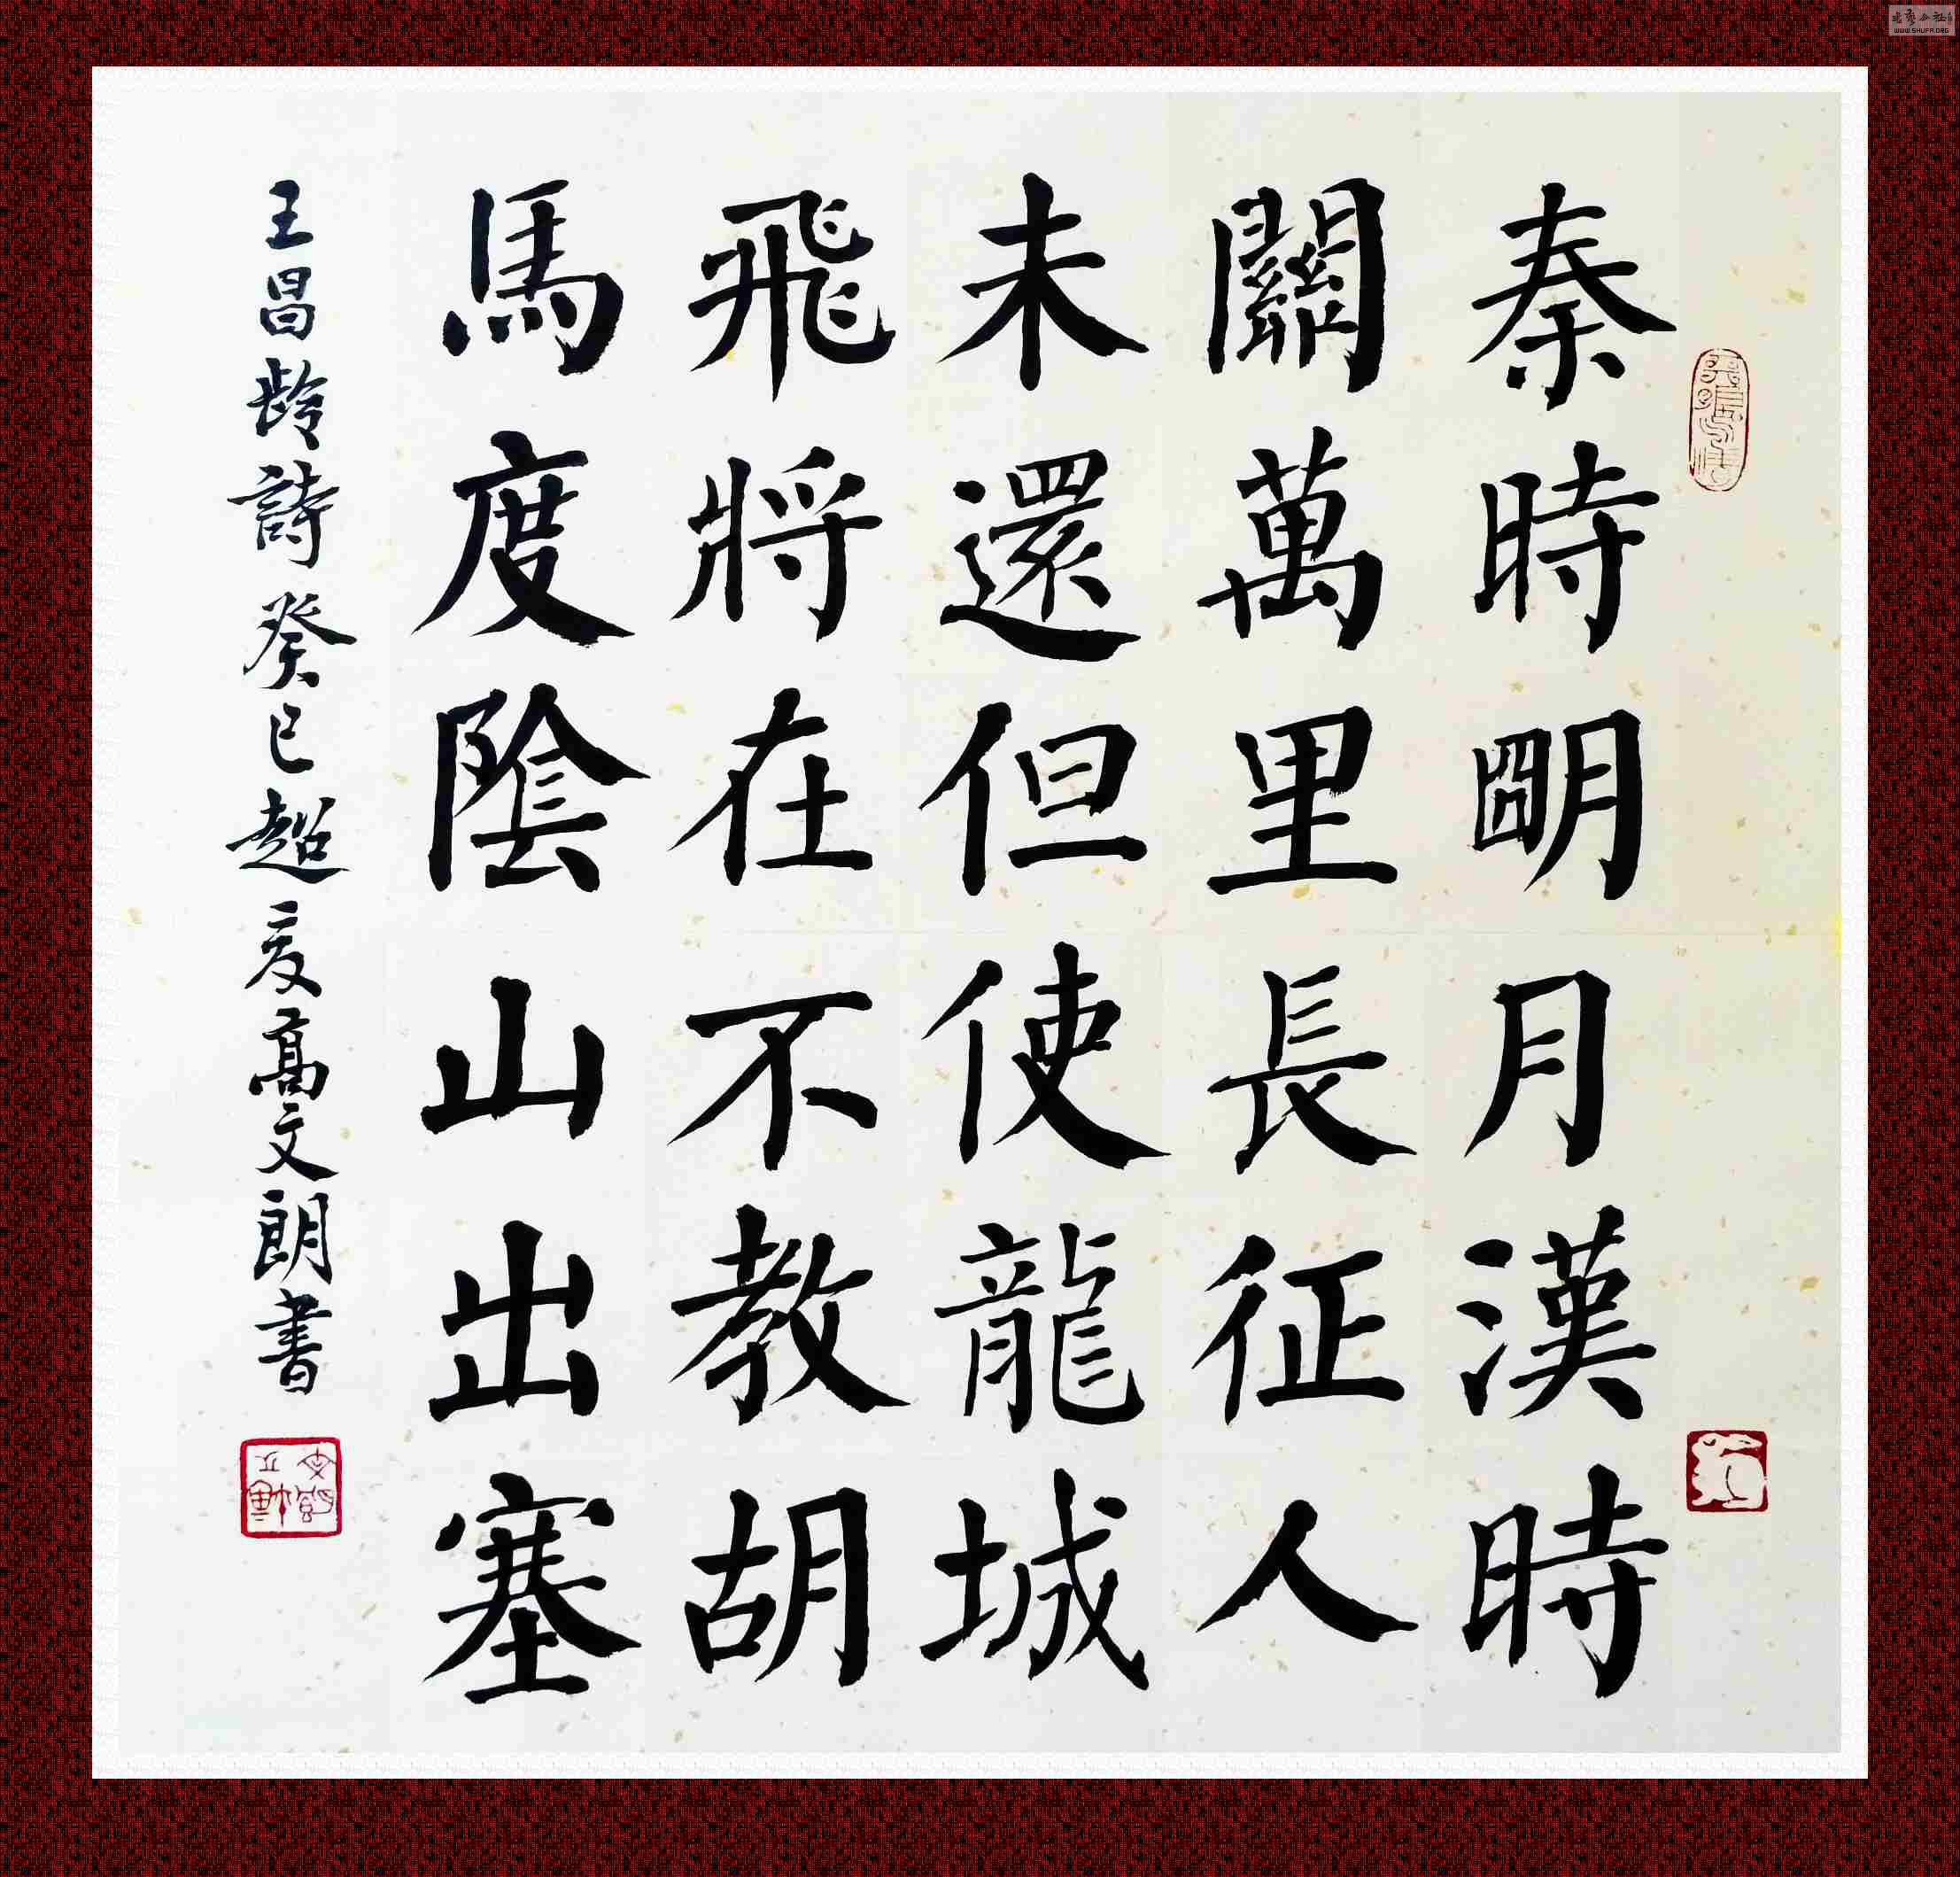 秦時朙月漢時
關萬里長征人
未還但使龍城
飛將在不教胡
馬度陰山出塞
王昌齡詩癸巳超高文朗書
WWW.SHUFA.ORG